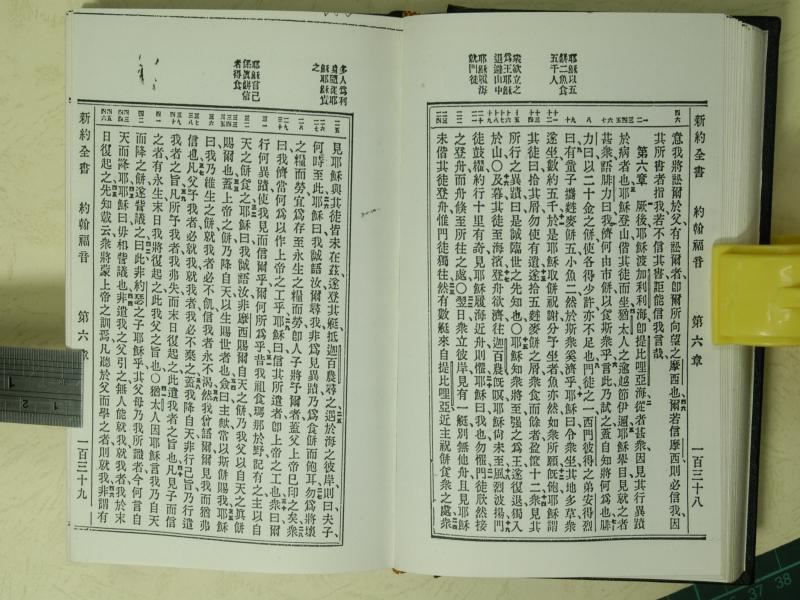 新約全書　約翰福音　第六章　一百三十八
耶穌以五
餅二魚食
五千人
衆欲立之
爲王耶穌
退避山中
耶穌履海
就門徒
意我將訟爾於父有訟爾者卽爾所向望之摩西也爾若信摩西則必信我因
其所書者指我若不信其書詎能信我言哉
第六章　厥後耶穌渡加利利海卽提比哩亞海從者甚衆因見其行異蹟
於病者也耶穌登山偕其徒而坐猶太人之逾越節伊邇耶穌舉目見就之者
甚衆語腓力曰我儕何由市餅以食斯衆乎言此乃試之蓋自知將何爲也腓
力曰以二十金之餅使各得少許亦不足也門徒之一西門彼得之弟安得烈
曰有童子攜麰麥餅五小魚二然於斯衆奚濟乎耶穌曰令衆坐其地多草衆
遂坐數約五千於是耶穌取餅祝謝分予坐者魚亦然如衆所願旣飽耶穌謂
其徒曰拾其屑勿使有遺遂拾五麰麥餅之屑衆食而餘者盈筐十二衆見其
所行之異蹟曰是誠臨世之先知也〇耶穌知衆將至强之爲王遂復退獨入
於山〇及暮其徒至海濱登舟欲濟往迦百農旣暝耶穌尚未至風烈波揚門
徒鼓櫂約行十里有奇見耶穌履海近舟則懼耶穌曰我也勿懼門徒欣然接
之登舟而舟倐至所往之處〇翌日衆立彼岸見有一艇別無他舟且見耶穌
未偕其徒登舟惟門徒獨往然有數艇來自提比哩亞近主祝餅食衆之處衆
新約全書　約翰福音　第六章　一百三十九
多人爲利
身隨從耶
穌耶穌責
之
耶穌言己
係眞餅信
者得食
見耶穌與其徒皆未在茲遂登其艇抵迦百農尋之遇於海之彼岸則曰夫子
何時至此耶穌曰我誠語汝爾尋我非爲見異蹟乃爲食餅而飽耳勿爲將壞
之糧而勞宜爲存至永生之糧而勞卽人子將予爾者蓋父上帝已印之矣衆
曰我儕當何爲以作上帝之工乎耶穌曰信其所遣者卽上帝之工也衆曰爾
行何異蹟使我見而信爾乎爾何所爲乎昔我祖食瑪那於野記有之主以自
天之餅食之耶穌曰我誠語汝非摩西賜爾自天之餅乃我父以自天之眞餅
賜爾也蓋上帝之餅乃降自天以生賜世者也僉曰主歟常以斯餅賜我耶穌
曰我乃維生之餅就我者必不飢信我者永不渴然我曾語爾爾見我而猶弗
信也凡父予我者必就我就我者我必不棄之蓋我降自天非行己旨乃行遣
我者之旨凡所予我者我弗失而末日復起之此遣我者之旨也凡見子而信
之者有永生末日我將復起之此我父之旨也〇猶太人因耶穌言我乃自天
而降之餅遂訾議之曰此非約瑟之子耶穌乎其父母乃我所識者今何言自
天而降耶耶穌曰毋相訾議也非遣我之父引之無人能就我就我者我於末
日復起之先知載云衆將蒙上帝之訓焉凡聽於父而學之者則就我非謂有